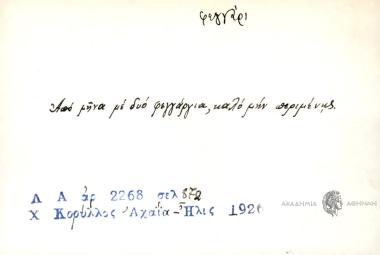 φεγγάρι
Από μήνα με δυό φεγγάργια, καλό μην περιμένης.
Λ Α ἀρ 2268 σελ 872
Χ Κορύλλος Ἀχαΐα-Ἦλις 1920
ΑΚΑΔΗΜΙΑ ΑΘΗΝΩΝ